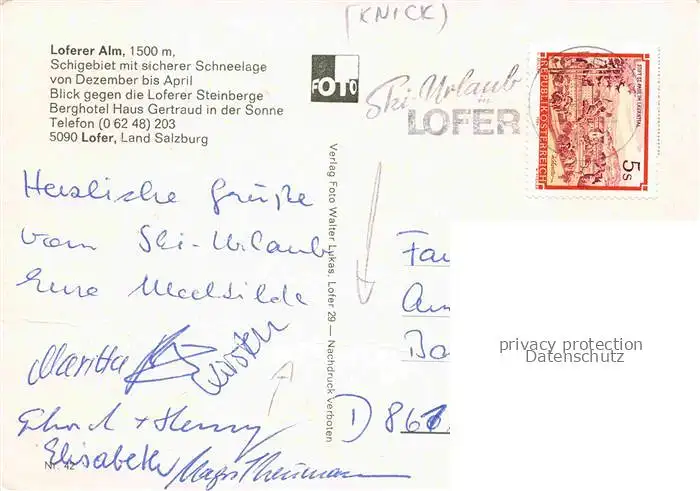 (KNICK)
Loferer Alm, 1500 m,
Schigebiet mit sicherer Schneelage
von Dezember bis April
Blick gegen die Loferer Steinberge
Berghotel Haus Gertraud in der Sonne
Telefon (0 62 48) 203
5090 Lofer, Land Salzburg
FOTO
Ski-Urlaub
in
LOFER
REPUBLIK ÖSTERREICH
5 S
Verlag Foto Walter Lukas, Lofer 29 — Nachdruck verboten
Herzliche Grüße
vom Ski-Urlaub
Eure Mechtilde
Maritta
Kirsten
Gerhard + Henny
Elisabeth
Nr. 42
Fa
Am
Ba
D 861
privacy protection
Datenschutz